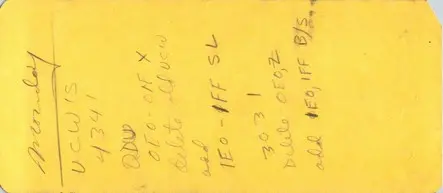 Monday
UCW'S
4341
OEO-CNF X
delete old ucw
add
1EO-1FF SL
3031
Delete OEO,2
add 1EO, 1FF B/S